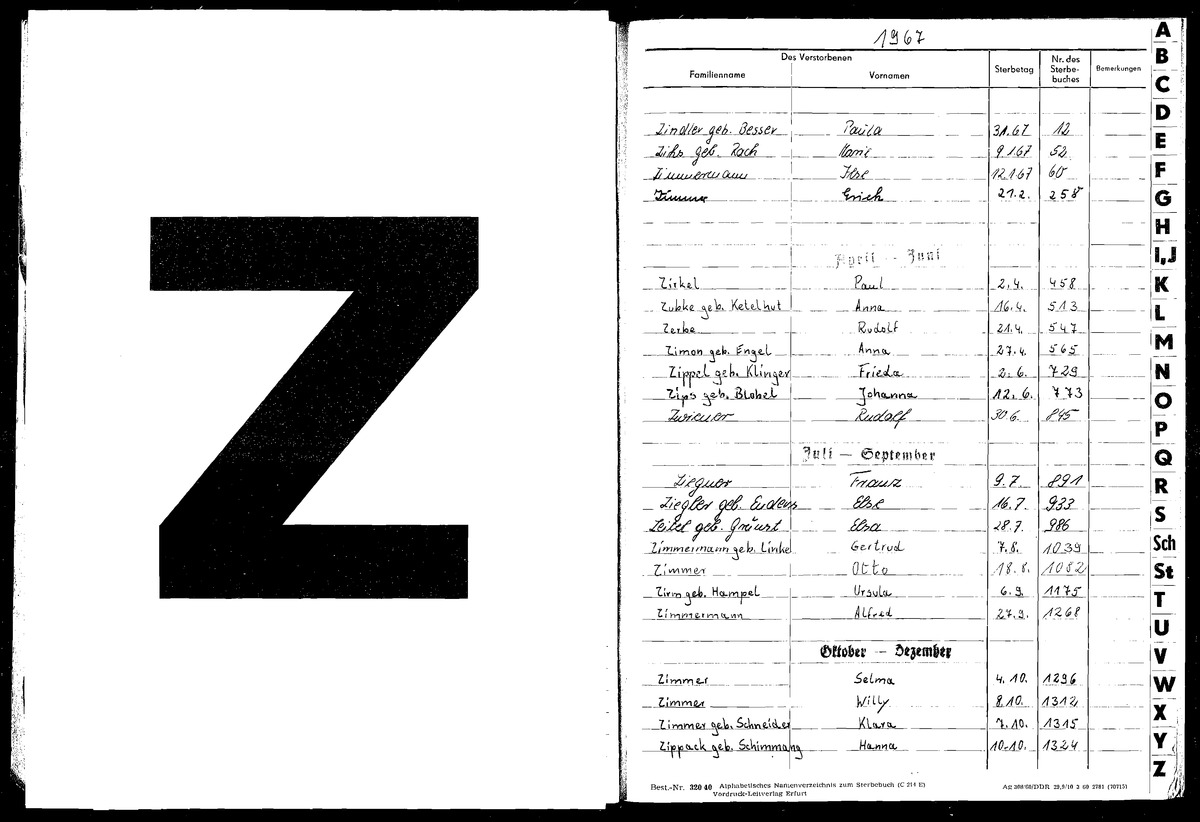 Z
1967
Des Verstorbenen
Familienname Vornamen Sterbetag Nr. des Sterbe- buches Bemerkungen
Zindler geb. Besser Paula 3.1.67 12
Zihs geb. Rach Marie 9.1.67 52
Zimmermann Ilse 12.1.67 60
Zimmer Erich 21.2. 258
April — Juni
Zirkel Paul 2.4. 458
Zubke geb. Ketelhut Anna 16.4. 513
Zerbe Rudolf 21.4. 547
Zimon geb. Engel Anna 27.4. 565
Zippel geb. Klinger Frieda 2.6. 729
Zips geb. Blobel Johanna 12.6. 773
Zwiener Rudolf 30.6. 845
Juli — September
Ziegner Franz 9.7. 891
Ziegler geb. Enders Else 16.7. 933
Zeitel geb. Elsa 28.7. 986
Zimmermann geb. Linke Gertrud 7.8. 1039
Zimmer Otto 18.8. 1082
Zirm geb. Hampel Ursula 6.9. 1175
Zimmermann Alfred 27.9. 1268
Oktober — Dezember
Zimmer Selma 4.10. 1296
Zimmer Willy 8.10. 1312
Zimmer geb. Schneider Klara 7.10. 1315
Zippack geb. Schimmang Hanna 10.10. 1324
Best.-Nr. 320 40 Alphabetisches Namenverzeichnis zum Sterbebuch (C 214 E)
Vordruck-Leitverlag Erfurt
Ag 308/60/DDR
A
B
C
D
E
F
G
H
I,J
K
L
M
N
O
P
Q
R
S
Sch
St
T
U
V
W
X
Y
Z